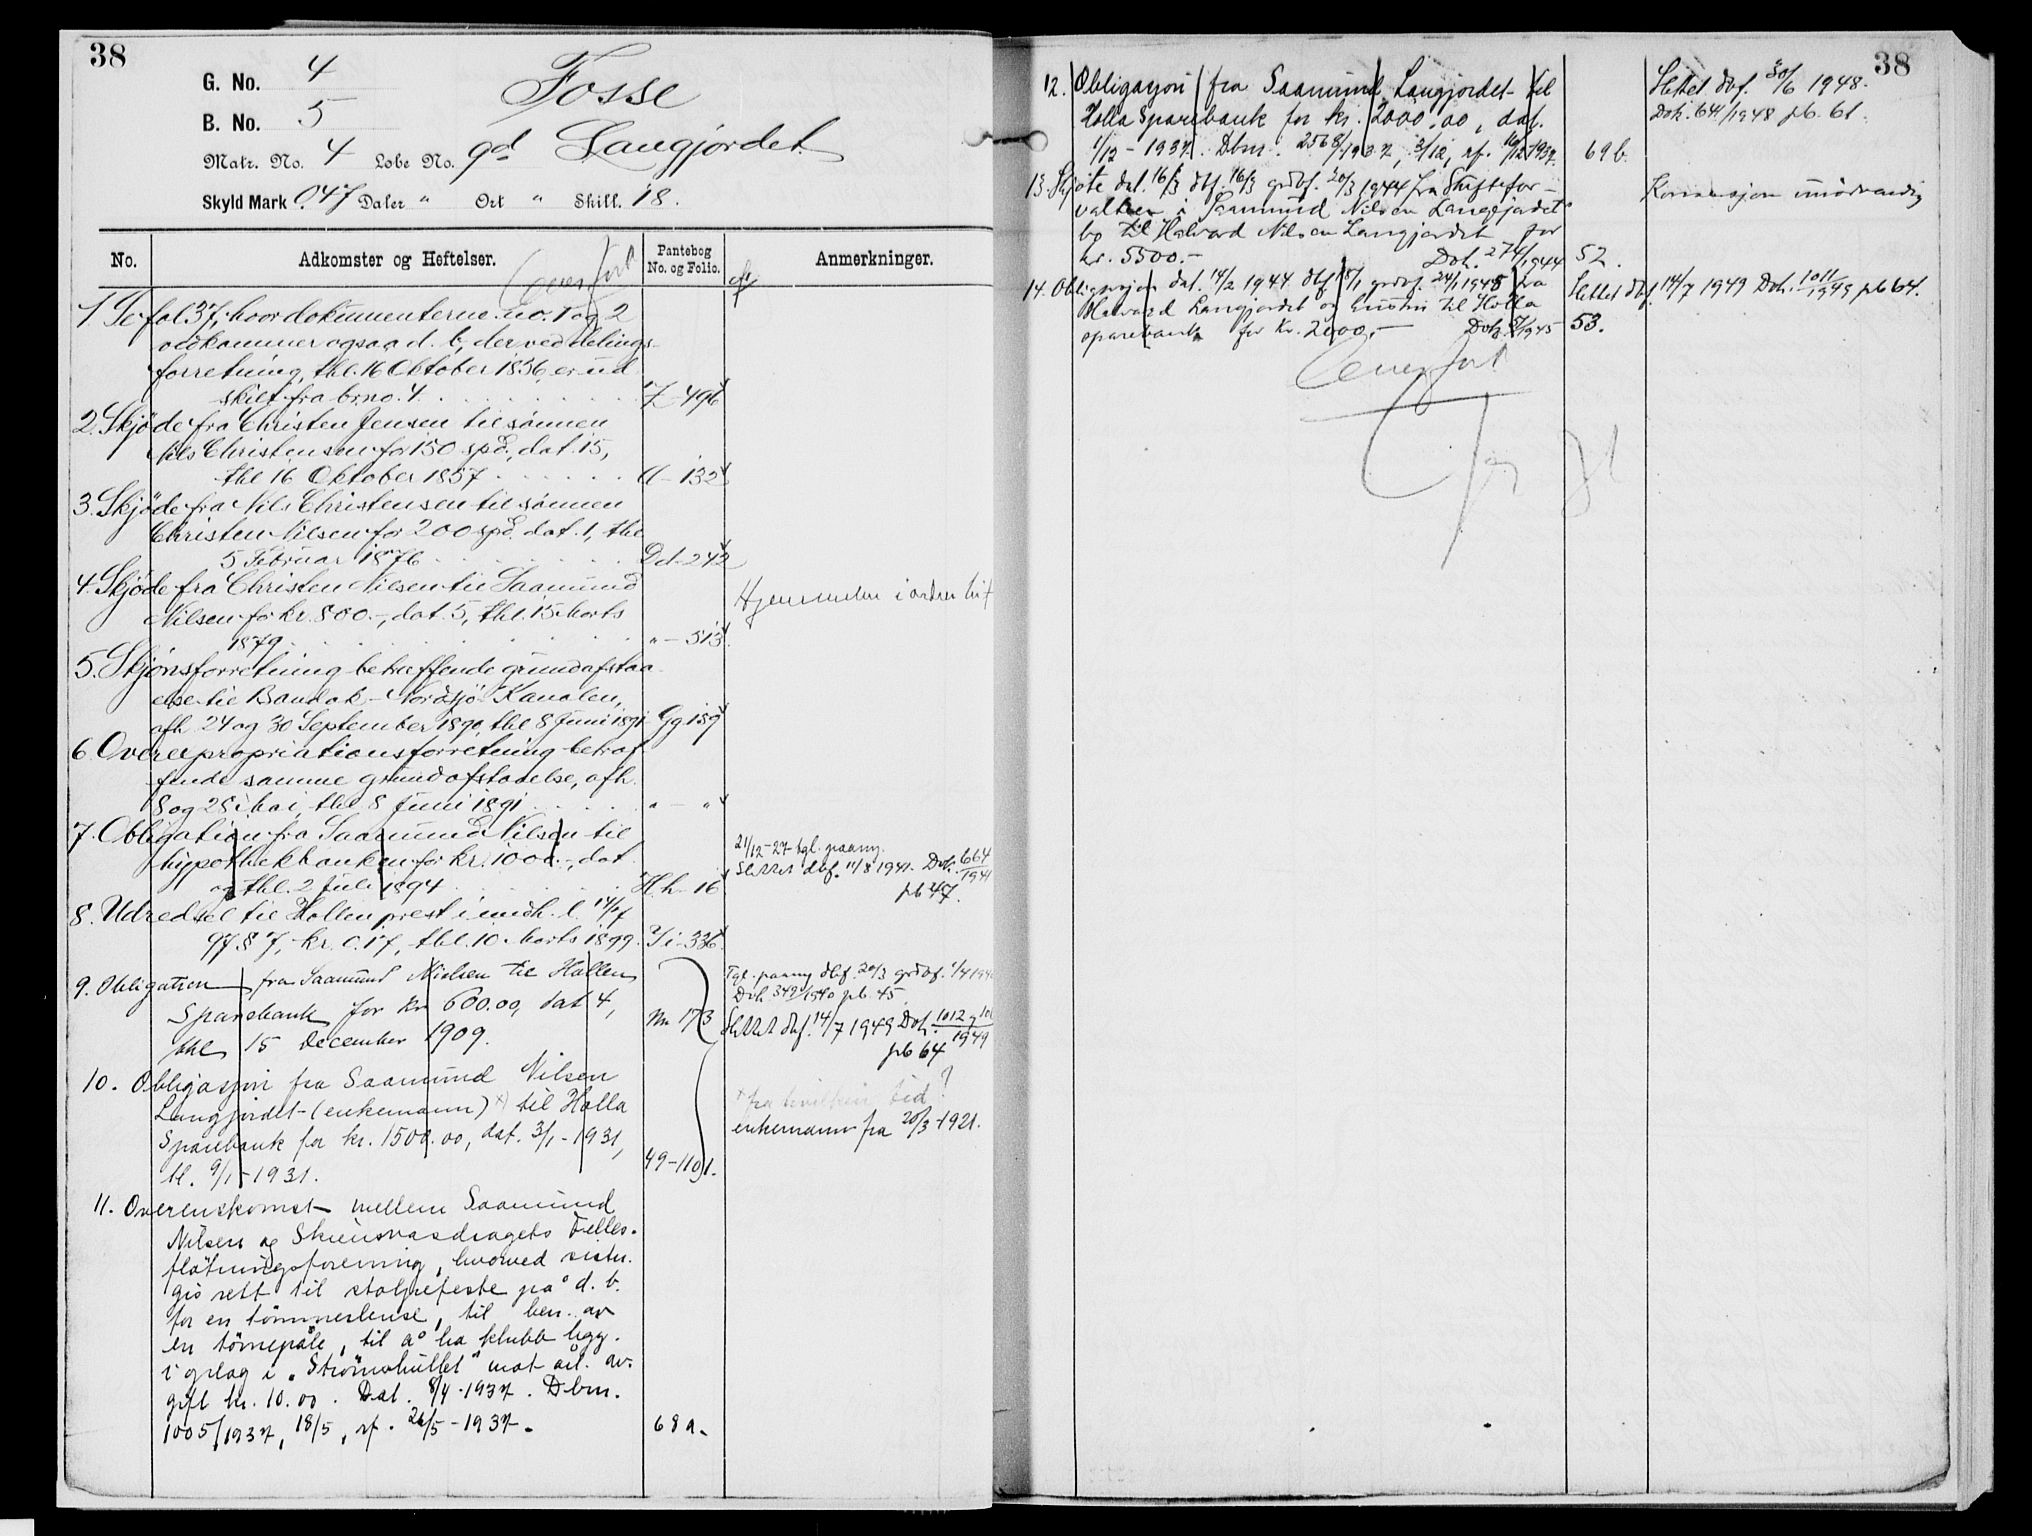 38
G. No. 4
Fosse
B. No. 5
Matr. No. 4 Løbe No. 9d Langjordet
Skyld Mark 0.47 Daler " Ort " Skill. 18.
No. Adkomster og Heftelser. Pantebog No. og Folio. Anmerkninger.
Overført
1. Se fol 37, hvor dokumenterne no. 1 og 2
vedkommer ogsaa d. b, der ved delings-
forretning, thl. 16 Oktober 1836, er ud
skilt fra br.no. 4. 7-496
2. Skjøde fra Christen Jensen til sønnen
Nils Christensen for 150 spd, dat. 15,
thl 16 Oktober 1857 A-132
3. Skjøde fra Nils Christensen til sønnen
Christen Nilsen for 200 spd. dat. 1, thl
5 Februar 1876 Dd-242
4. Skjøde fra Christen Nilsen til Saamund
Nilsen for kr. 800.-, dat. 5, thl. 15 Marts
1879 " - 513
Hjemmelen i orden hit
5. Skjønsforretning betreffende grundafstaa
else til Bandak-Nordsjø Kanalen,
afh. 24 og 30 September 1890, thl 8 Juni 1891 Gg 159
6. Overexpropriationsforretning betræf
fende samme grundafstaaelse, afh.
8 og 28 Mai, thl. 8 Juni 1891 " - "
7. Obligation fra Saamund Nilsen til
hypothekbanken for kr. 1000.-, dat.
og thl. 2 Juli 1894 Hh-16
21/12-27 tgl. paany.
Slettet dbf. 11/8 1941. Dok. 664/1941
pb 47.
8. Udredsel til Hollen prest i smdh. l. 14/7
97 § 7, kr. 0.17, thl. 10 Marts 1899. Ii-336
9. Obligation fra Saamund Nielsen til Hollen
Sparebank for kr 600.00, dat 4,
thl 15 December 1909. 173
Tgl. paany dbf. 20/3 grdbf. 1/4 1940
Dok. 349/1940 pb. 45
Slettet dbf. 14/7 1949 Dok. 1012 1949
pb 64
10. Obligasjon fra Saamund Nilsen
Langjordet (enkemann) x) til Holla
Sparebank for kr. 1500.00, dat. 3/1-1931,
tl. 9/1-1931. 49-1101.
x fra hvilken tid?
enkemann fra 20/3-1921.
11. Overenskomst mellem Saamund
Nilsen og Skiensvasdragets Felles-
fløtningsforening, hvorved sistn.
gis rett til stolpefeste på d. b.
for en tømmerlense, til ben. av
en tørnepåle, til å ha klubb ligg.
i oplag i "Strømshullet" mot årl. av-
gift kr. 10.00. Dat. 8/4-1937. Dbnr.
1005/1937, 18/5, rf. 26/5-1937. 68a.
38
12. Obligasjon fra Saamund Langjordet til
Holla Sparebank for kr. 2000.00, dat.
1/12-1937. Dbnr. 2568/1937, 3/12, rf. 10/12 1937. 69b.
Slettet dbf. 30/6 1948.
Dok. 641/1948 pb. 61.
13. Skjøte dat. 16/3 dbf. 16/3 grdbf. 20/3 1944 fra Skiftefor-
valteren i Saamund Nilsen Langejordets
bo til Halvard Nilsen Langjordet for
kr. 5500.- Dok. 274/1944 52.
Konsesjon unødvendig
14. Obligasjon dat. 14/2 1944 dbf 18/1 grdbf. 24/1 1945 fra
Halvard Langjordet og hustru til Holla
sparebank for kr. 2000.- Dok. 1945 53.
Slettet dbf. 14/7 1949 Dok. 1011/1949 pb 64.
Overført